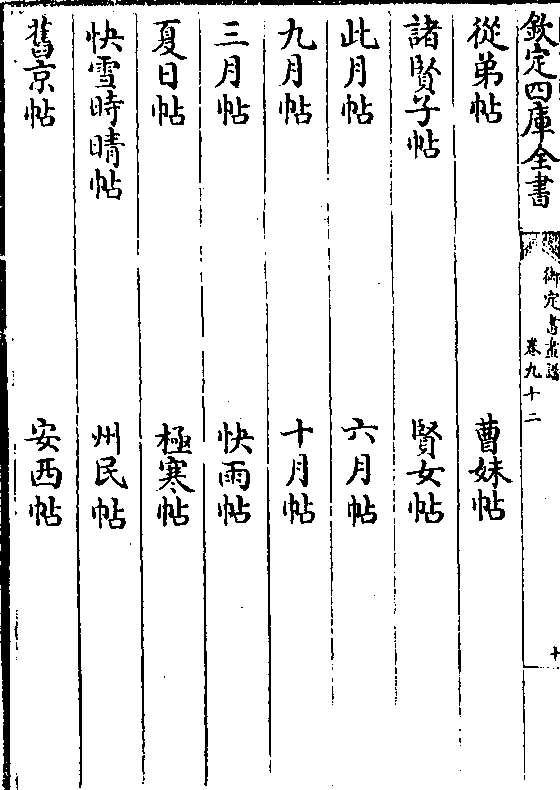 欽定四庫全書
御定書畫譜
卷九十二
十
從弟帖 曹妹帖
諸賢子帖 賢女帖
此月帖 六月帖
九月帖 十月帖
三月帖 快雨帖
夏日帖 極寒帖
快雪時晴帖 州民帖
舊京帖 安西帖